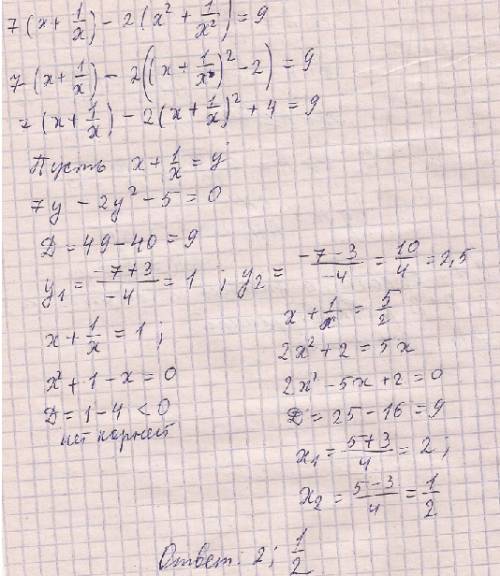 7(x+1/x)-2(x²+1/x²)=9
7(x+1/x)-2((x+1/x)²-2)=9
7(x+1/x)-2(x+1/x)²+4=9
Пусть x+1/x=y
7y-2y²-5=0
Д=49-40=9
y₁=(-7+3)/-4=1; y₂=(-7-3)/-4=10/4=2,5
x+1/x=1;
x²+1-x=0
Д=1-4<0
нет корней
x+1/x=5/2
2x²+2=5x
2x²-5x+2=0
Д=25-16=9
x₁=(5+3)/4=2;
x₂=(5-3)/4=1/2
Ответ: 2; 1/2